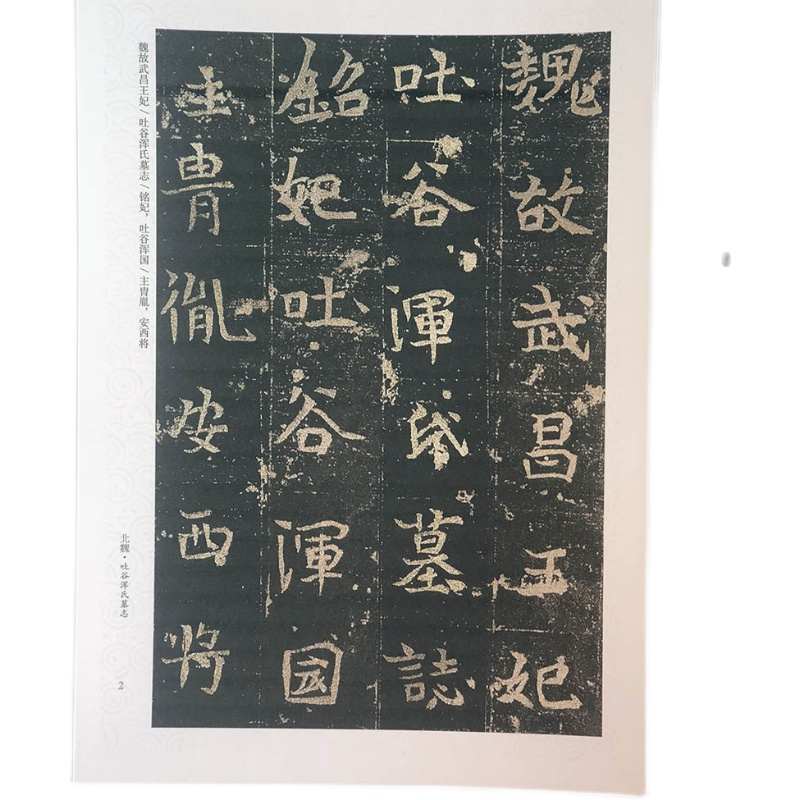 魏故武昌王妃
吐谷渾氏墓誌
銘妃吐谷渾国
主胄胤安西将
魏故武昌王妃／吐谷浑氏墓志／铭妃，吐谷浑国／主胄胤，安西将
北魏·吐谷浑氏墓志
2